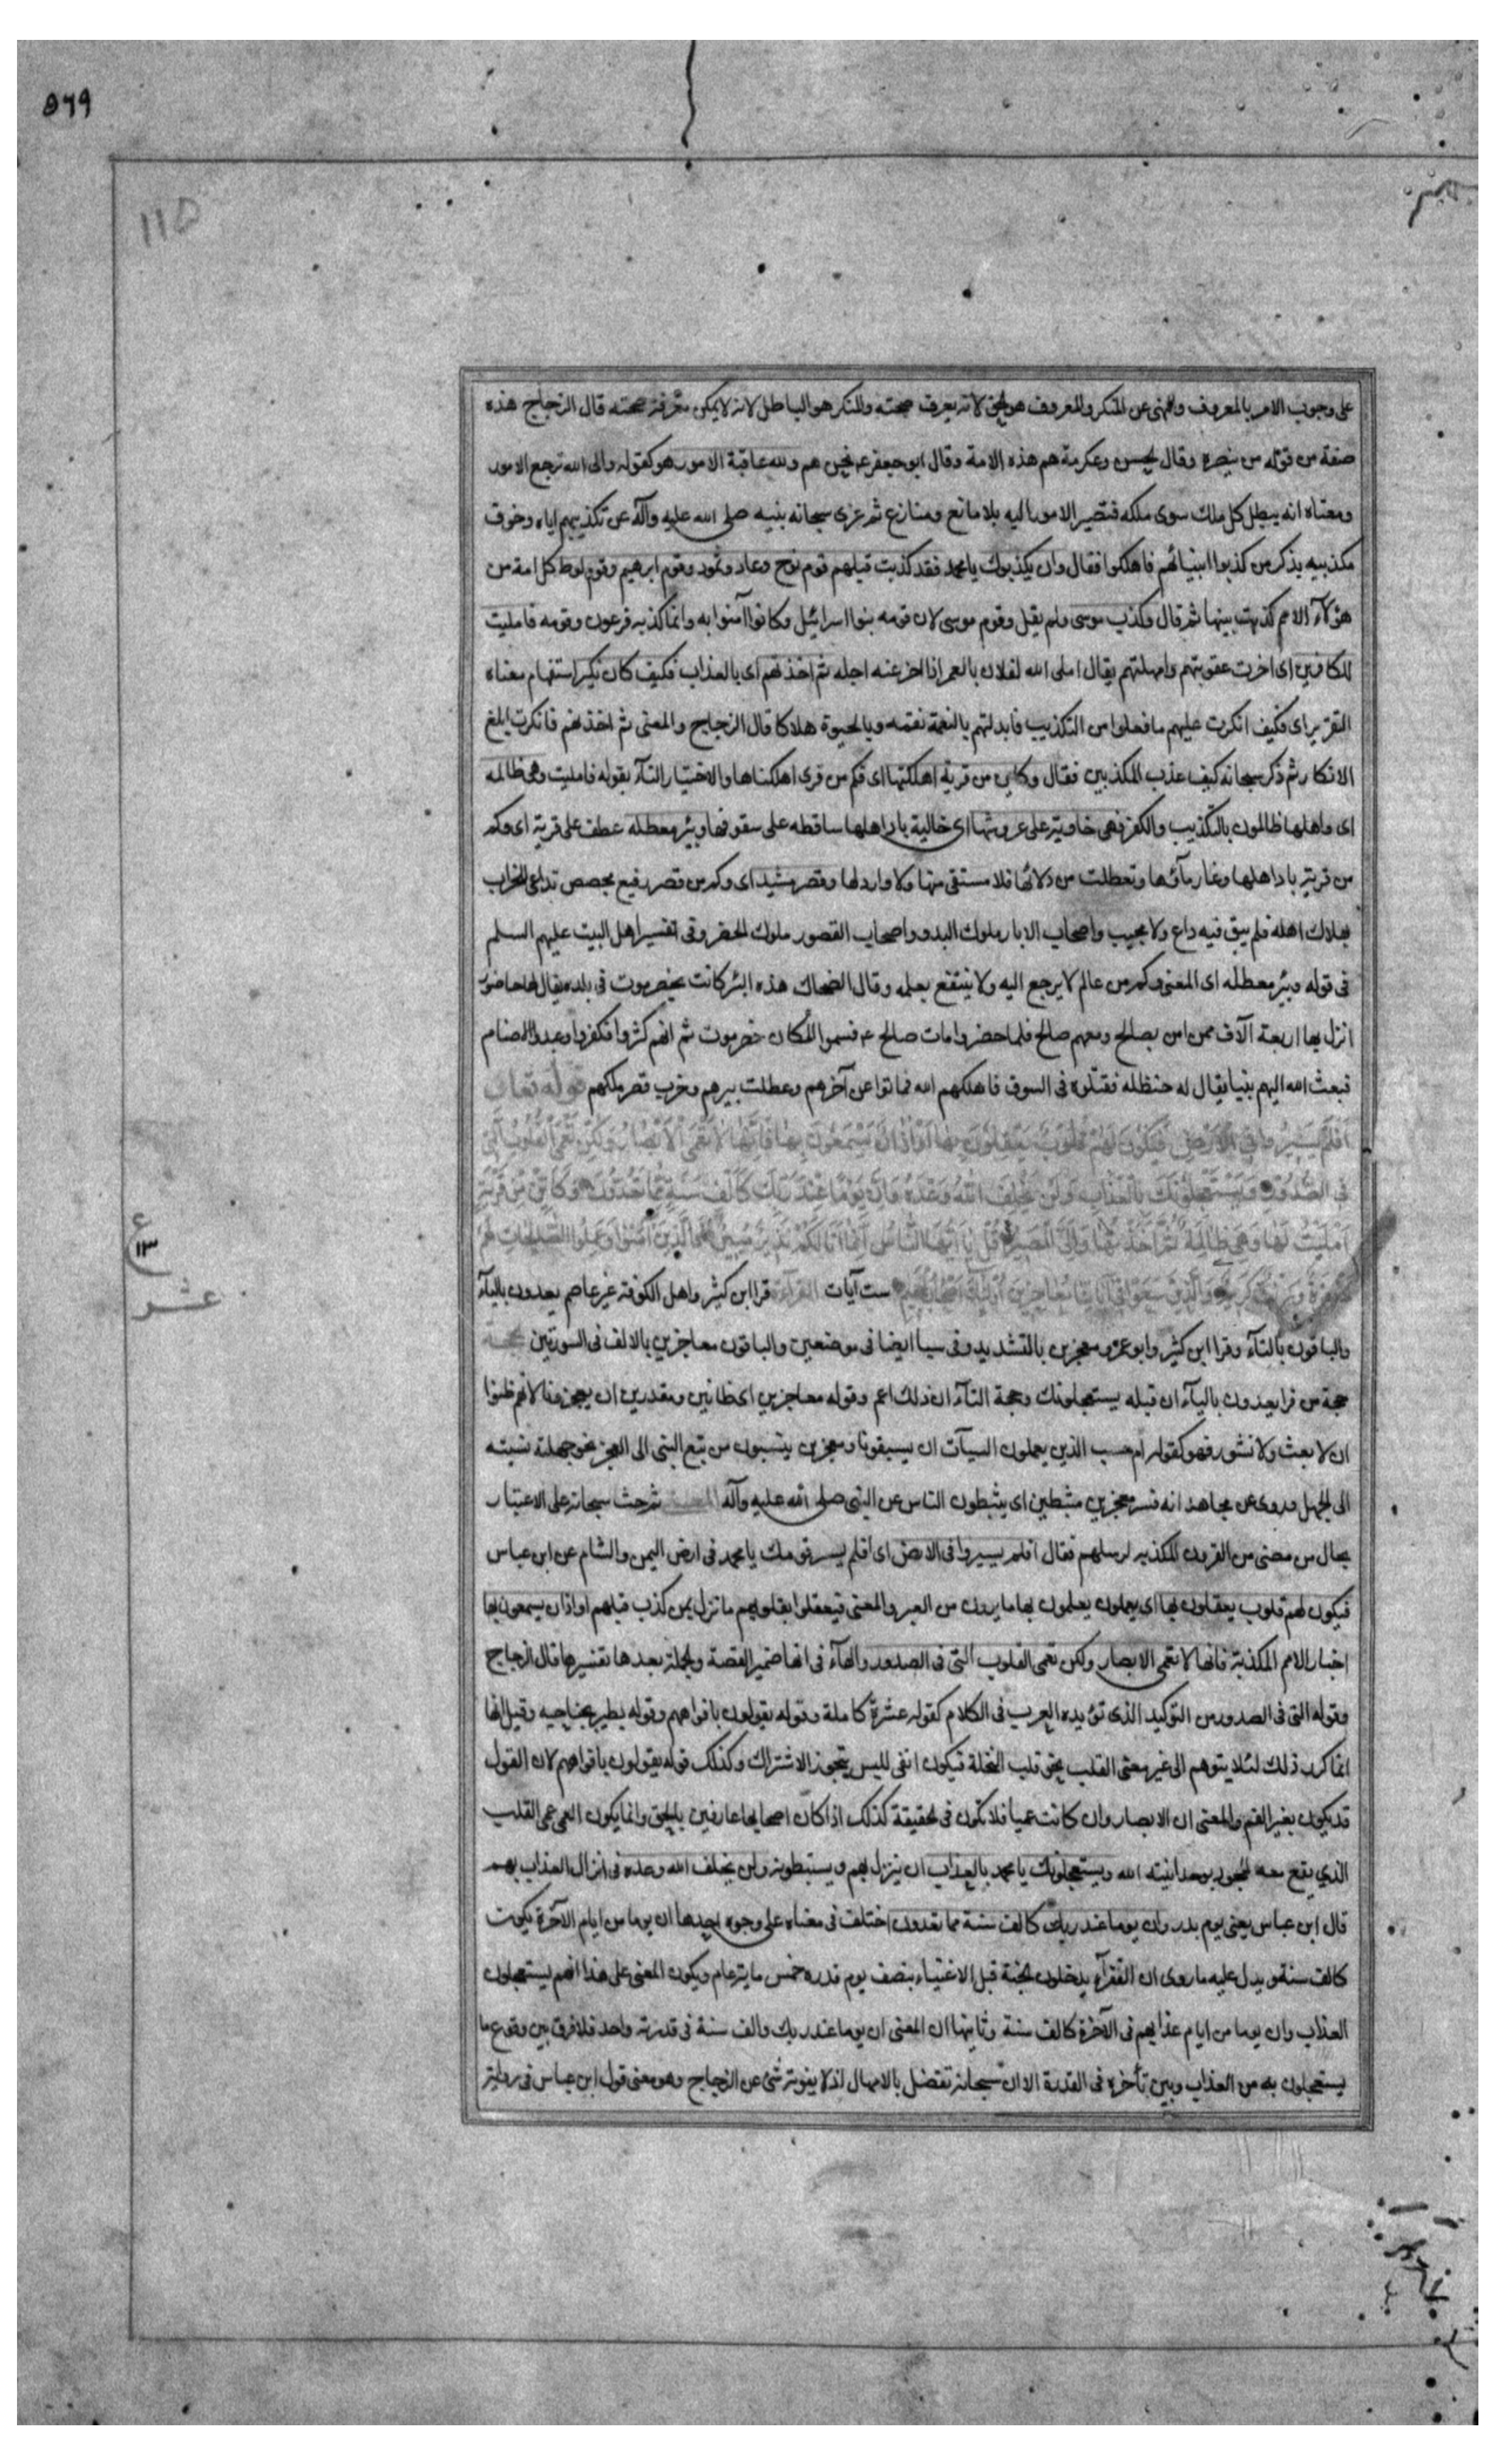 ٥٦٩
١١٥
على وجوب الامر بالمعروف والنهى عن المنكر والمعروف هو الحق لانه يعرف صحته والمنكر هو الباطل لانه لا يمكن معرفة صحته قال الزجاج هذه
صفة من قوله من ينصره وقال الحسن وعكرمة هم هذه الامة وقال ابو جعفر ع نحن هم ولله عاقبة الامور هو كقوله والى الله ترجع الامور
ومعناه انه يبطل كل ملك سوى ملكه فتصير الامور اليه بلا مانع ومنازع ثم عزى سبحانه نبيه صلى الله عليه وآله عن تكذيبهم اياه وخوف
مكذبيه بذكر من كذبوا انبيائهم فاهلكوا فقال وان يكذبوك يا محمد فقد كذبت قبلهم قوم نوح وعاد وثمود وقوم ابرهيم وقوم لوط كل امة من
هؤلآء الامم كذبت بنبيها ثم قال وكذب موسى ولم يقل وقوم موسى لان قومه بنوا اسرائيل وكانوا آمنوا به وانما كذبه فرعون وقومه فامليت
للكافرين اى اخرت عقوبتهم وامهلتهم يقال املى الله لفلان بالعمر اذا اخر عنه اجله ثم اخذتهم اى بالعذاب فكيف كان نكير استفهام معناه
التقرير اى فكيف انكرت عليهم ما فعلوا من التكذيب فابدلتهم بالنعمة نقمه وبالحيوة هلاكا قال الزجاج والمعنى ثم اخذتهم فانكرت ابلغ
الانكار ثم ذكر سبحانه كيف عذب المكذبين فقال وكاين من قرية اهلكتها اى فكم من قرى اهلكناها والاختيار التآء بقوله فامليت وهى ظالمه
اى واهلها ظالمون بالتكذيب والكفر فهى خاوية على عروشها اى خالية باد اهلها ساقطه على سقوفها وبئر معطله عطف على قرية اى وكم
من قرية باد اهلها وغار مآئها وتعطلت من دلائها فلا مستقى منها ولا وارد لها وقصر مشيد اى وكم من قصر رفيع مجصص تداعى للخراب
بهلاك اهله فلم يبق فيه داع ولا مجيب واصحاب الابار ملوك البدو واصحاب القصور ملوك الحضر وفى تفسير اهل البيت عليهم السلم
فى قوله وبئر معطله اى المعنى وكم من عالم لا يرجع اليه ولا ينتفع بعلمه وقال الضحاك هذه البئر كانت بحضرموت فى بلده يقال لها حاضور
انزل بها اربعة آلاف ممن امن بصالح ومعهم صالح فلما حضروا مات صالح ع فسموا المكان حضرموت ثم انهم كثروا فكفروا وعبدوا الاصنام
فبعث الله اليهم نبيا يقال له حنظله فقتلوه فى السوق فاهلكهم الله فماتوا عن آخرهم وعطلت بيرهم وخرب قصر ملكهم قوله تعالى
اَفَلَمْ يَسيرُوا فِى الْاَرْضِ فَتَكُونَ لَهُمْ قُلُوبٌ يَعْقِلُونَ بِها اَوْ اٰذانٌ يَسْمَعُونَ بِها فَاِنَّها لا تَعْمَى الْاَبْصارُ وَلٰكِنْ تَعْمَى الْقُلُوبُ الَّتى
فِى الصُّدُورِ وَيَسْتَعْجِلُونَكَ بِالْعَذابِ وَلَنْ يُخْلِفَ اللّٰهُ وَعْدَهُ وَاِنَّ يَوْمًا عِنْدَ رَبِّكَ كَاَلْفِ سَنَةٍ مِمّا تَعُدُّونَ وَكَاَيِّنْ مِنْ قَرْيَةٍ
اَمْلَيْتُ لَها وَهِىَ ظالِمَةٌ ثُمَّ اَخَذْتُها وَاِلَىَّ الْمَصيرُ قُلْ يا اَيُّهَا النّاسُ اِنَّما اَنَا لَكُمْ نَذيرٌ مُبينٌ فَالَّذينَ اٰمَنُوا وَعَمِلُوا الصّٰلِحٰاتِ لَهُمْ
مَغْفِرَةٌ وَرِزْقٌ كَريمٌ وَالَّذينَ سَعَوْا فى اٰياتِنا مُعاجِزينَ اُولٰئِكَ اَصْحابُ الْجَحيمِ ست آيات القرآءة قرا ابن كثير واهل الكوفة غير عاصم يعدون باليآء
والباقون بالتآء وقرا ابن كثير وابو عمرو معجزين بالتشديد وفى سبا ايضا فى موضعين والباقون معاجزين بالالف فى السورتين الحجة
حجة من قرا يعدون باليآء ان قبله يستعجلونك وحجة التآء ان ذلك اعم وقوله معاجزين اى ظانين ومقدرين ان يعجزونا لانهم ظنوا
ان لا بعث ولا نشور فهو كقوله ام حسب الذين يعملون السيآت ان يسبقونا ومعجزين ينسبون من تبع النبى الى العجز نحو جهلته نسبته
الى الجهل وروى عن مجاهد انه فسر معجزين مثبطين اى يثبطون الناس عن النبى صلى الله عليه وآله المعنى ثم حث سبحانه على الاعتبار
بحال من مضى من القرون المكذبه لرسلهم فقال افلم يسيروا فى الارض اى افلم يسر قومك يا محمد فى ارض اليمن والشام عن ابن عباس
فيكون لهم قلوب يعقلون بها اى يعملون يعلمون بها ما يرون من العبر والمعنى فيعقلوا بقلوبهم ما نزل بمن كذب قبلهم او اذان يسمعون بها
اخبار الامم المكذبة فانها لا تعمى الابصار ولكن تعمى القلوب التى فى الصدور والهآء فى انها ضمير القصة والجملة بعدها تفسيرها قال الزجاج
وقوله التى فى الصدور من التوكيد الذى تؤيده العرب فى الكلام كقوله عشرة كاملة وقوله يقولون بافواههم وقوله يطير بجناحيه وقيل انها
انما كرر ذلك لئلا يتوهم الى غير معنى القلب نحو قلب النخلة فيكون انفى للبس بتجوز الاشتراك وكذلك قوله يقولون بافواههم لان القول
قد يكون بغير الفم والمعنى ان الابصار وان كانت عميا فلا تكون فى الحقيقة كذلك اذا كان اصحابها عارفين بالحق وانما يكون العمى عمى القلب
الذي يقع معه الجحود بوحدانيته الله ويستعجلونك يا محمد بالعذاب ان ينزل بهم ويستبطونه ولن يخلف الله وعده فى انزال العذاب بهم
قال ابن عباس يعنى يوم بدر وان يوما عند ربك كالف سنة مما تعدون اختلف فى معناه على وجوه احدها ان يوما من ايام الآخرة يكون
كالف سنة ويدل عليه ما روى ان الفقرآء يدخلون الجنة قبل الاغنياء بنصف يوم قدره خمس ماية عام ويكون المعنى على هذا انهم يستعجلون
العذاب وان يوما من ايام عذابهم فى الآخرة كالف سنة وثانيها ان المعنى ان يوما عند ربك والف سنة فى قدرته واحد فلا فرق بين وقوع ما
يستعجلون به من العذاب وبين تأخره فى القدرة الا ان سبحانه تفضل بالامهال اذ لا يفوته شئ عن الزجاج وهو معنى قول ابن عباس فى رواية
ع
١٣
عشر